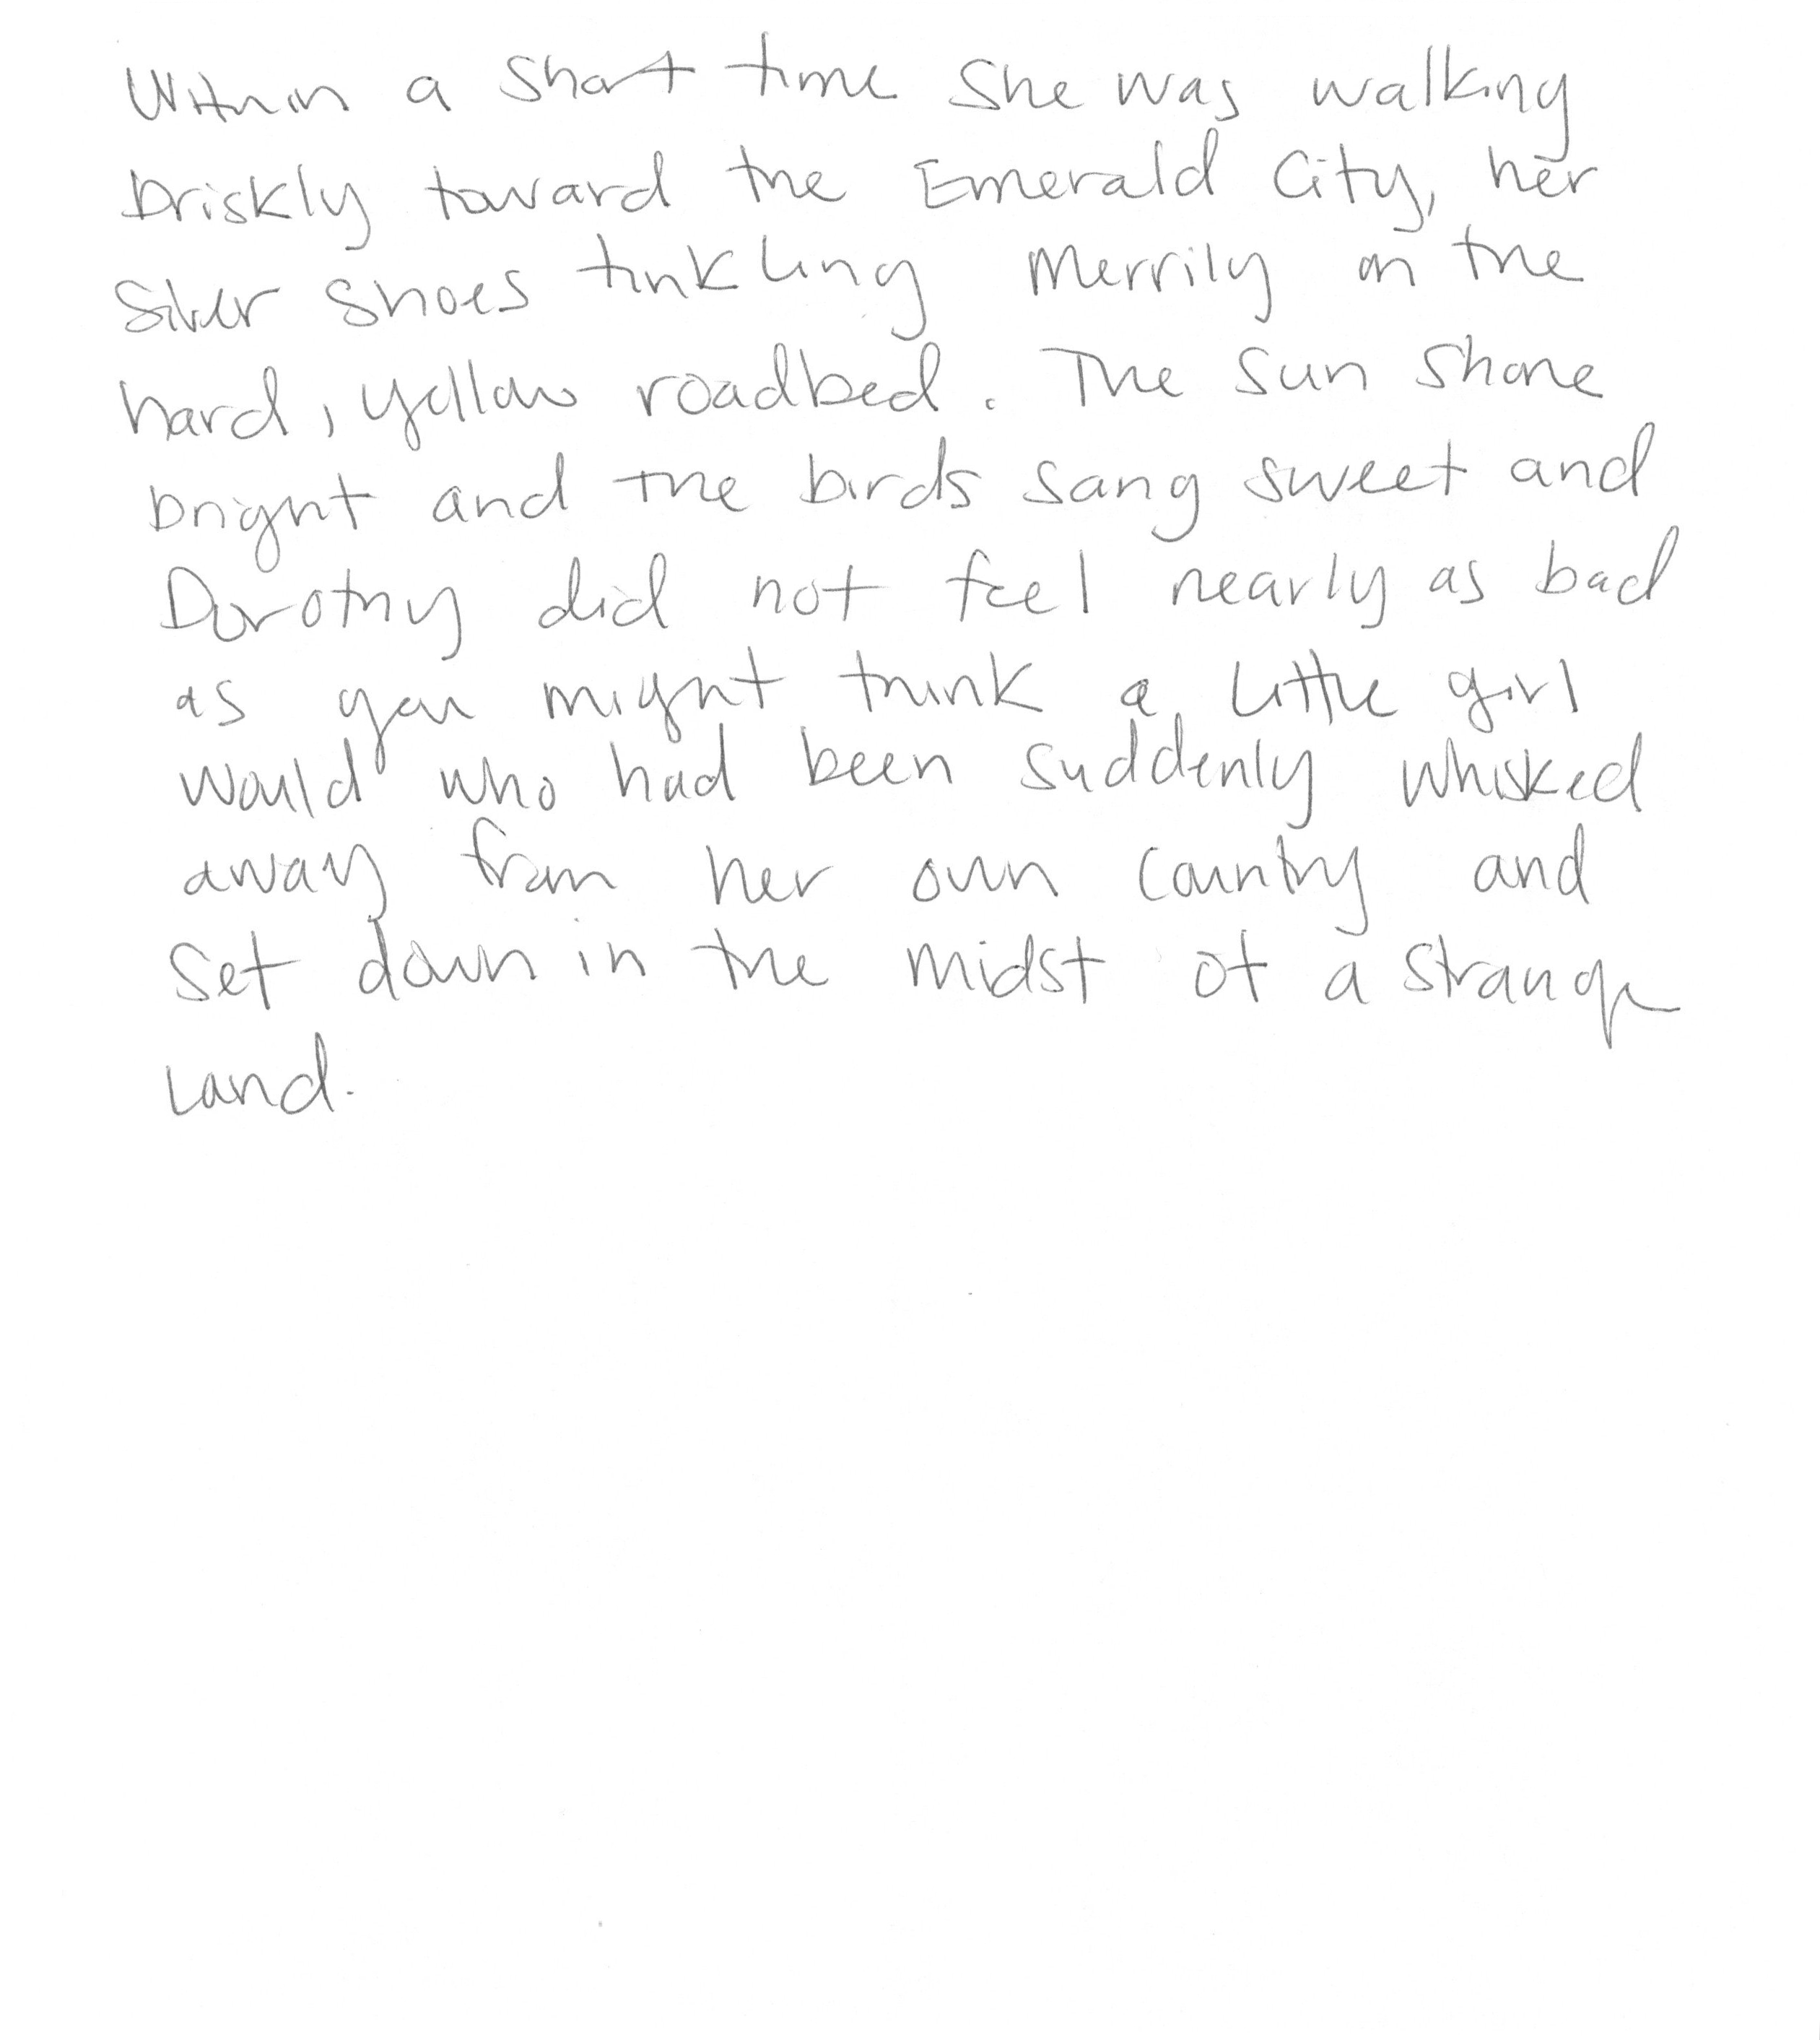 Within a short time she was walking
briskly toward the Emerald City, her
Silver Shoes tinkling merrily on the
hard, yellow roadbed. The sun shone
bright and the birds sang sweet and
Dorothy did not feel nearly as bad
as you might think a little girl
would who had been suddenly whisked
away from her own country and
set down in the midst of a strange
land.